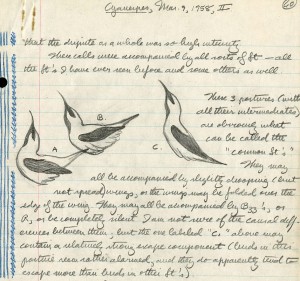 Cyanerpes, Mar. 9, 1958, II
60
that the dispute as a whole was so high intensity.
These calls were accompanied by all sorts of ft - all
the ft's I have ever seen before and some others as well
These 3 postures (with
all their intermediates)
are obviously what
can be called the
"common ft's."
They may
A
B.
C.
all be accompanied by slightly drooping (but
not spread) wings, or the wings may be folded over the
edge of the wing. They may all be accompanied by Bzz's, or
R, or be completely silent. I am not sure of the causal diff-
erences between them, but the one labeled "C." above may
contain a relatively strong escape component (birds in this
posture seem rather alarmed, and they do apparently tend to
escape more than birds in other ft's).